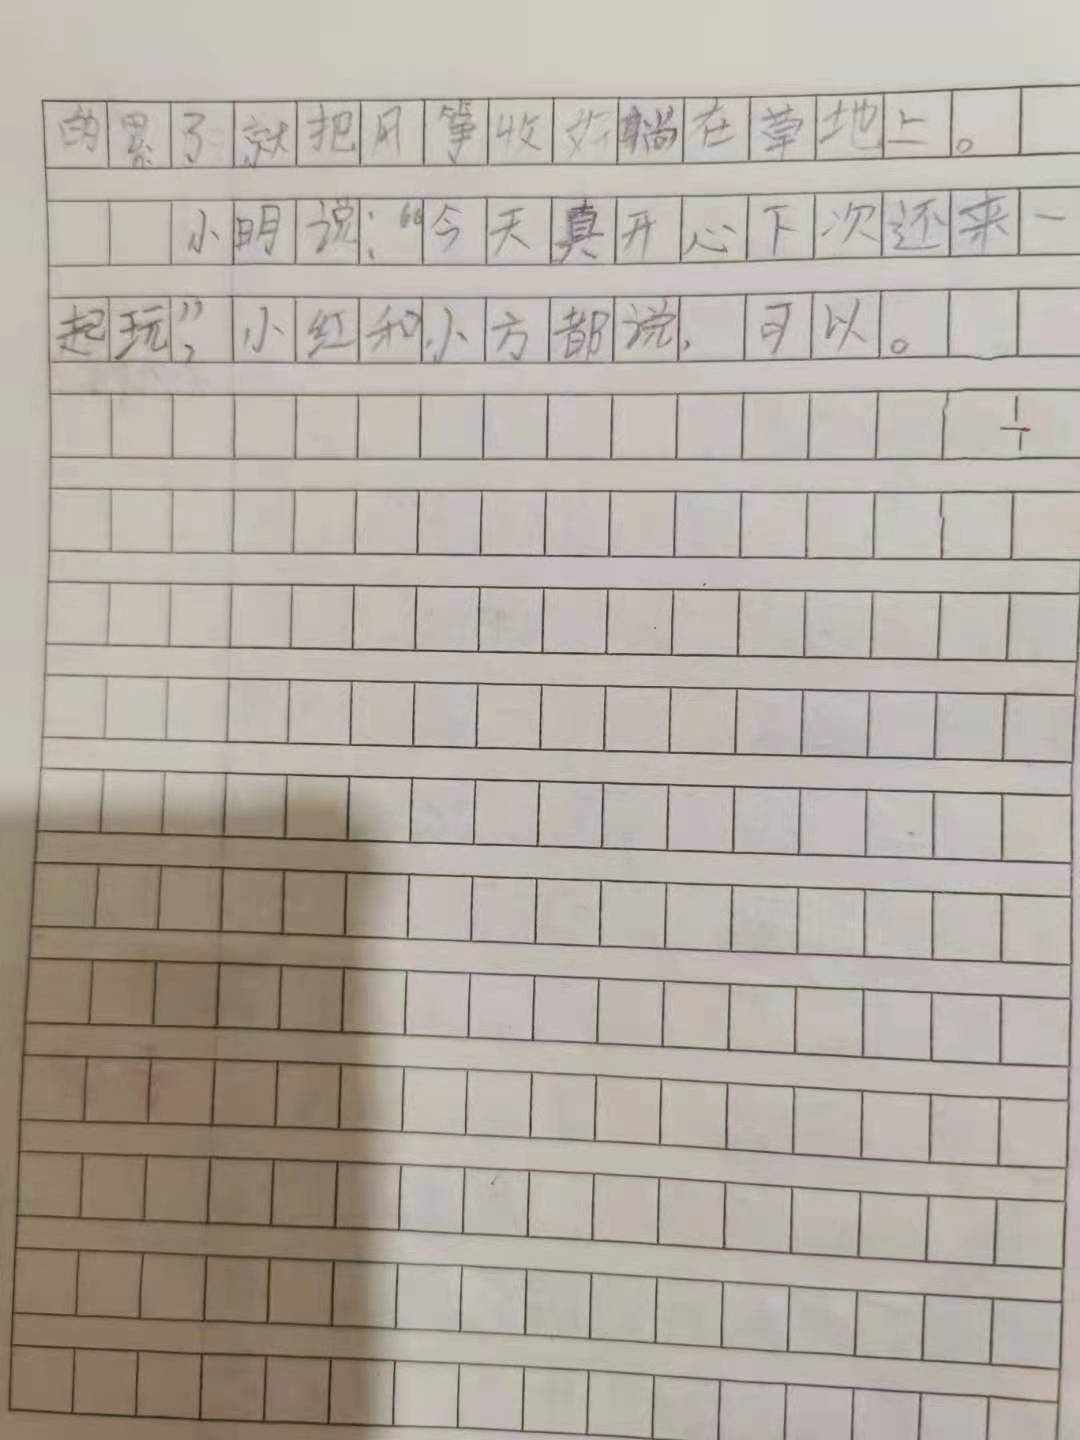 的累了就把风筝收好躺在草地上。
小明说：“今天真开心下次还来一
起玩”，小红和小方都说，可以。